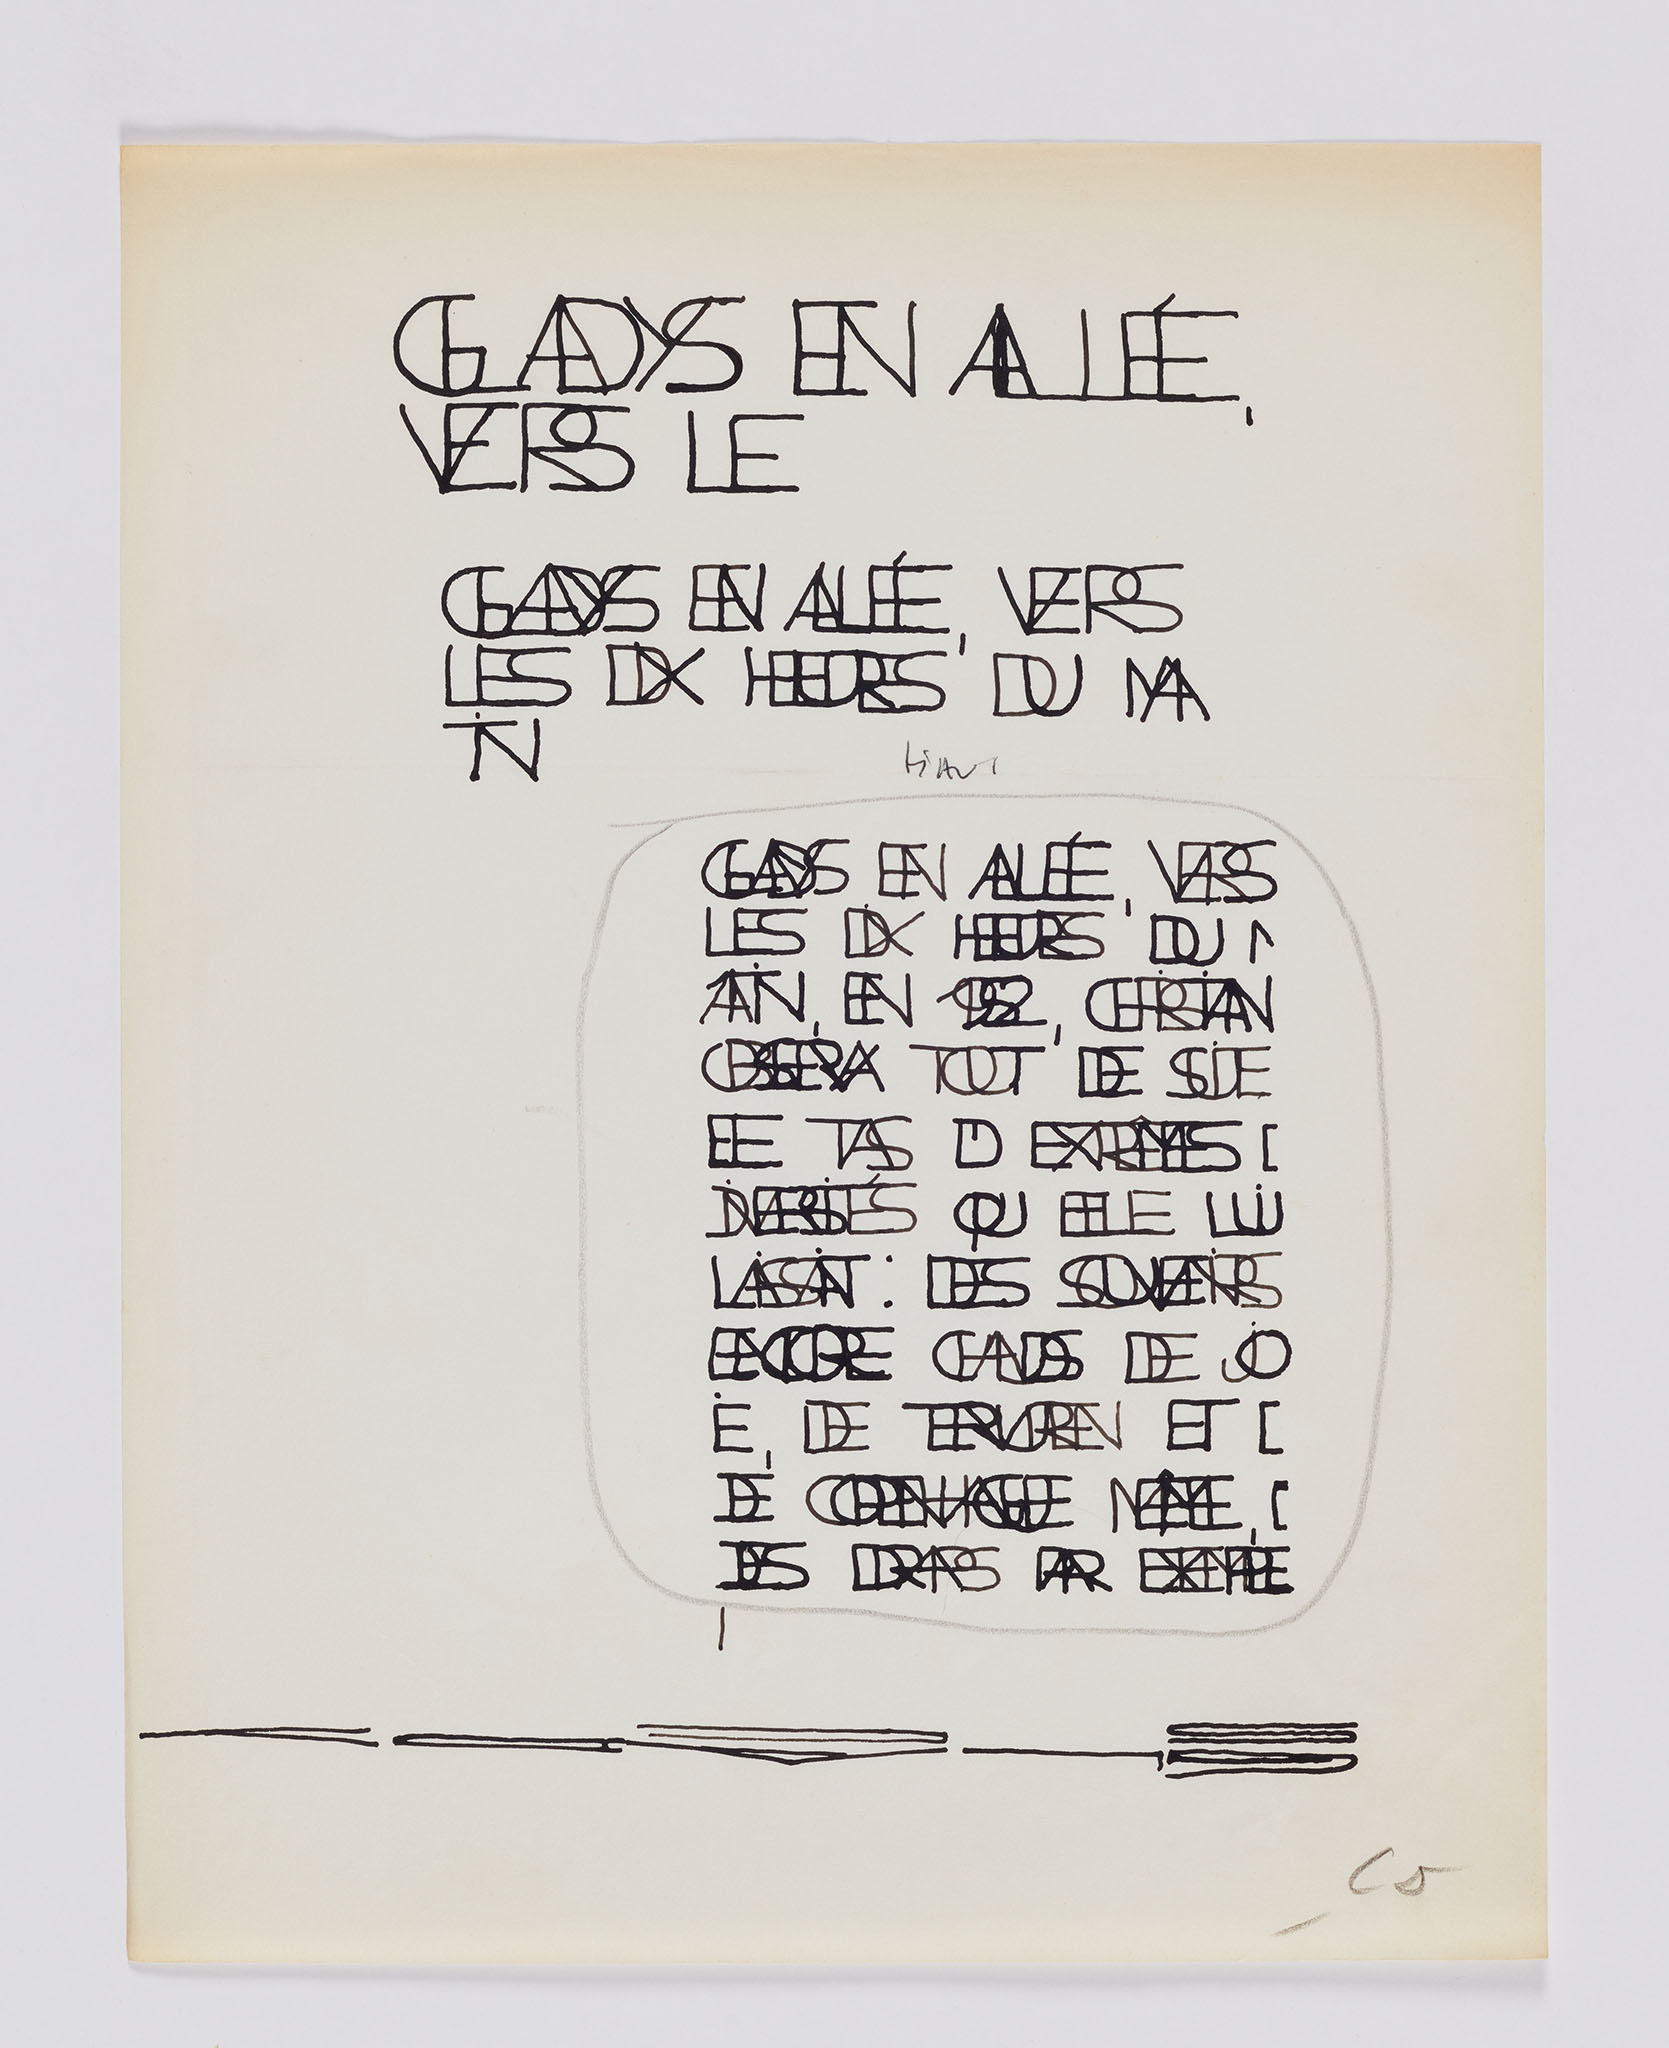 GLADYS EN ALLÉE,
VERS LE
GLADYS EN ALLÉE, VERS
LES DIX HEURES DU MA
TIN
HAUT
GLADYS EN ALLÉE, VERS
LES DIX HEURES DU M
ATIN, EN 1952, CHRISTIAN
OBSERVA TOUT DE SUITE
LE TAS D'EXTRÊMES [
DIVERSITÉS QU'ELLE LUI
LAISSAIT : DES SOUVENIRS
ENCORE CHAUDS DE JO
IE, DE TERVUREN ET [
DE COPENHAGUE MÊME, [
DES DRAPS PAR EXEMPLE
,